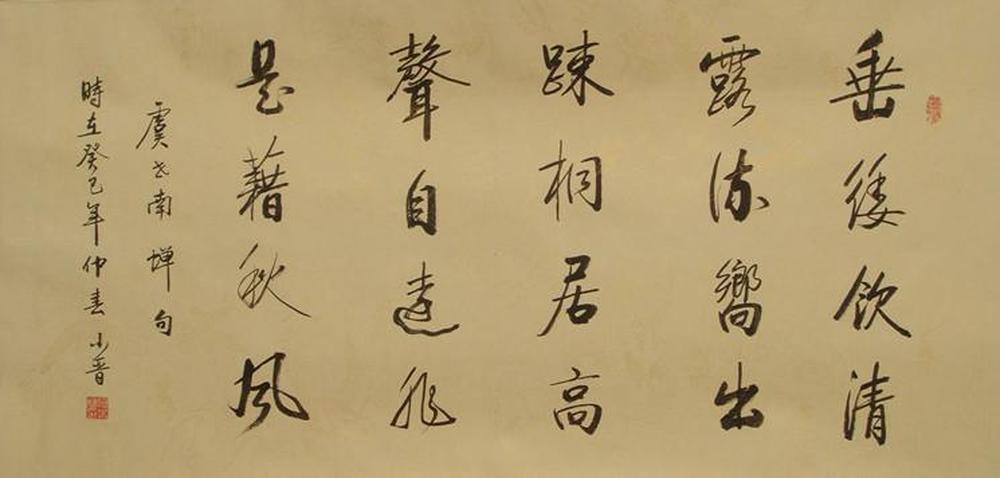 垂緌飲清
露流嚮出
踈桐居高
聲自遠非
是藉秋風
虞世南蟬句
時在癸巳年仲春小晋